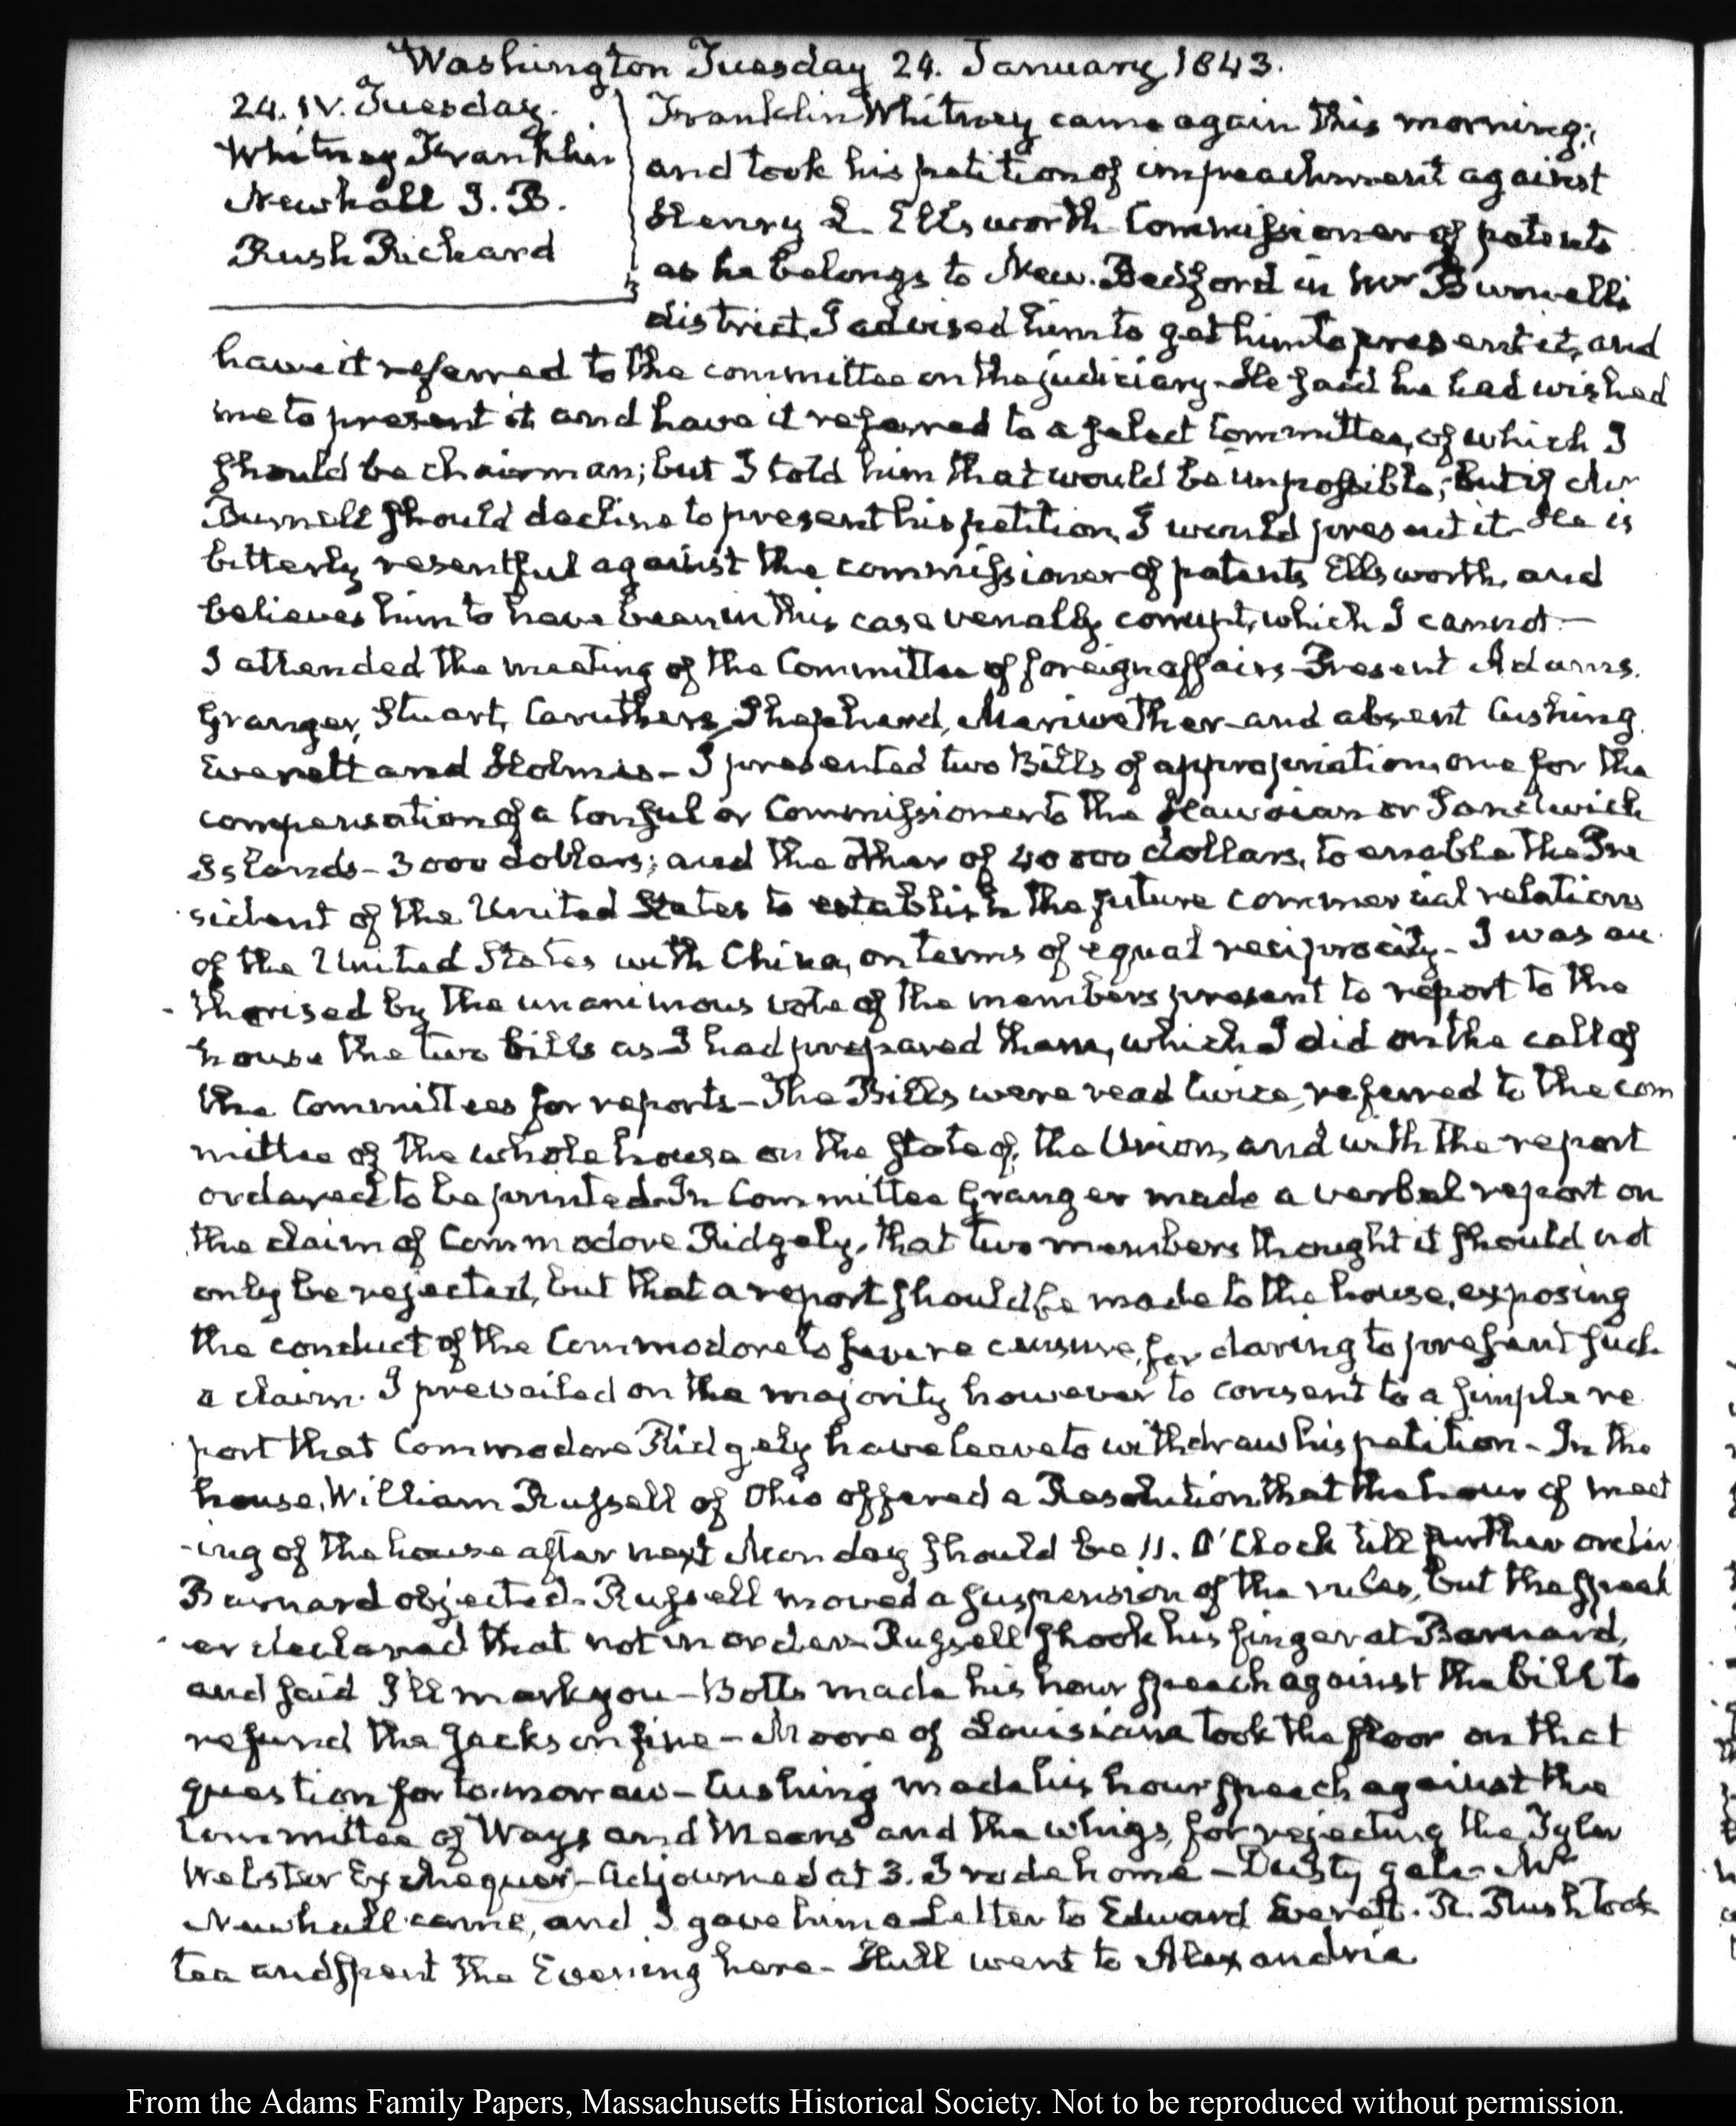 Washington Tuesday 24. January 1843.
24. IV. Tuesday.
Whitney Franklin
Newhall I. B.
Rush Richard
Franklin Whitney came again this morning;
and took his petition of impeachment against
Henry L. Ellsworth Commissioner of patents
as he belongs to New-Bedford in Mr Burnell's
district, I advised him to get him to present it, and
have it referred to the committee on the judiciary. He said he had wished
me to present it and have it referred to a select Committee, of which I
should be chairman; but I told him that would be impossible; but if Mr
Burnell should decline to present his petition, I would present it. He is
bitterly resentful against the commissioner of patents Ellsworth, and
believes him to have been in this case venally corrupt, which I cannot.—
I attended the meeting of the Committee of foreign affairs. Present Adams.
Granger, Stuart, Caruthers, Shepherd, Meriwether and absent Cushing.
Everett and Holmes — I presented two Bills of appropriation, one for the
compensation of a Consul or Commissioner to the Hawaian or Sandwich
Islands — 3000 dollars; and the other of 40000 dollars, to enable the Pre
sident of the United States to establish the future commercial relations
of the United States with China, on terms of equal reciprocity — I was au
thorised by the unanimous vote of the members present to report to the
house the two bills as I had prepared them, which I did on the call of
the Committees for reports — The Bills were read twice, referred to the com
mittee of the whole house on the state of the Union, and with the report
ordered to be printed. In Committee Granger made a verbal report on
the claim of Commodore Ridgely, that two members thought it should not
only be rejected, but that a report should be made to the house, exposing
the conduct of the Commodore to severe censure, for daring to present such
a claim. I prevailed on the majority however to consent to a simple re
port that Commodore Ridgely have leave to withdraw his petition — In the
house, William Russell of Ohio offered a Resolution that the hour of meet
-ing of the house after next Monday should be 11. O'Clock till further order
Barnard objected. Russell moved a suspension of the rules, but the speak
er declared that not in order. Russell shook his finger at Barnard,
and said I'll mark you — Botts made his hour speech against the bill to
refund the Jackson fine — Moore of Louisiana took the floor on that
question for to-morrow — Cushing made his hour speech against the
Committee of Ways and Means and the whigs, for rejecting the Tyler
Webster Exchequer — Adjourned at 3. I rode home — Dusty gale — Mr
Newhall came, and I gave him a Letter to Edward Everett. R. Rush took
tea and spent the Evening here — Hull went to Alexandria
From the Adams Family Papers, Massachusetts Historical Society. Not to be reproduced without permission.